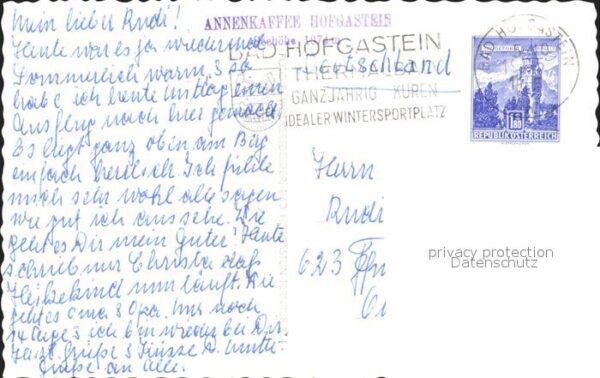 Mein lieber Rudi!
Heute war es ja wiedermal
Sommerlich warm, & so
habe ich heute Mittag einen
Ausflug nach hier gemacht
Es liegt ganz oben am Berg
einfach herrlich. Ich fühle
mich sehr wohl alle sagen
wie gut ich aussehe. Wie
geht es Dir mein Guter? Heute
schrieb mir Christa daß
Heikekind nun läuft. Wie
geht es Oma & Opa. Nur noch
14 Tage & ich bin wieder bei Dir.
Grüße & Küsse D. Mutti
Grüße an alle.
ANNENKAFFEE HOFGASTEIN
BAD HOFGASTEIN
THERMALBAD
GANZJÄHRIG KUREN
IDEALER WINTERSPORTPLATZ
BAD HOFGASTEIN
1.80
REPUBLIK ÖSTERREICH
Deutschland
Herrn
Rudi
623
privacy protection
Datenschutz